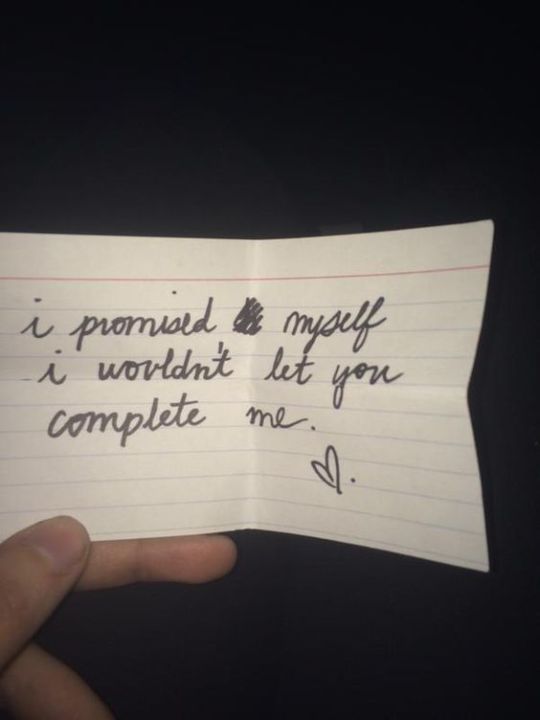 i promised myself
i wouldn't let you
complete me.